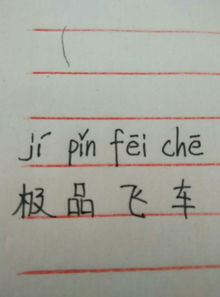 jí pǐn fēi chē
极品飞车